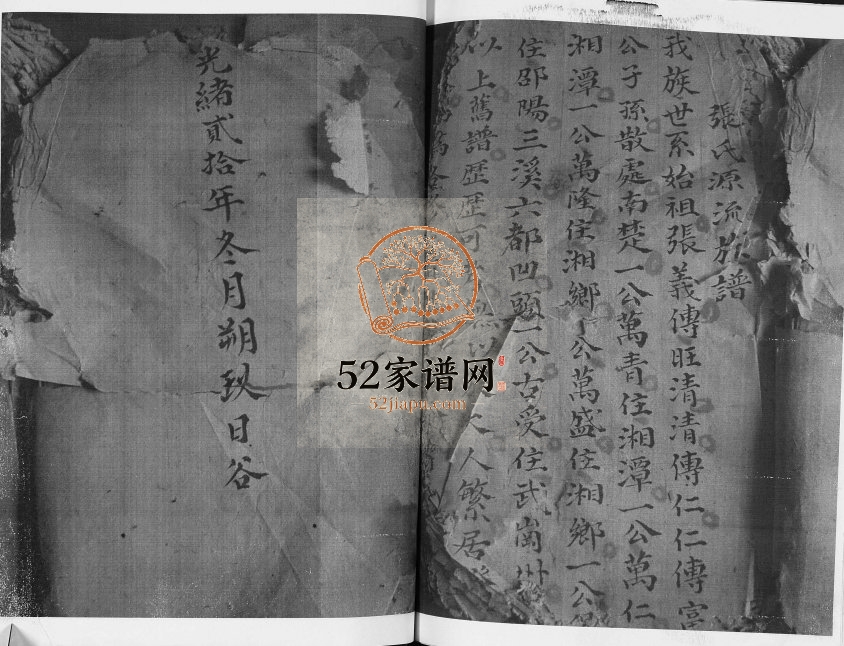 張氏源流族譜
我族世系始祖張義傳旺清清傳仁仁傳富
公子孫散處南楚一公萬青住湘潭一公萬仁
湘潭一公萬隆住湘鄉一公萬盛住湘鄉一公
住邵陽三溪六都凹頭一公古受住武崗州
以上舊譜歷歷可
人繁居
光緒貳拾年冬月朔玖日谷
52家谱网
52jiapu.com